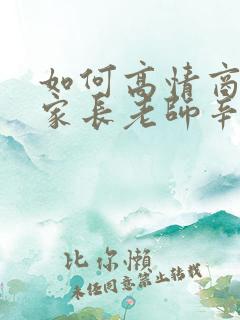 如何高情商
家长老师辛
比尔懒
未经同意禁止转载